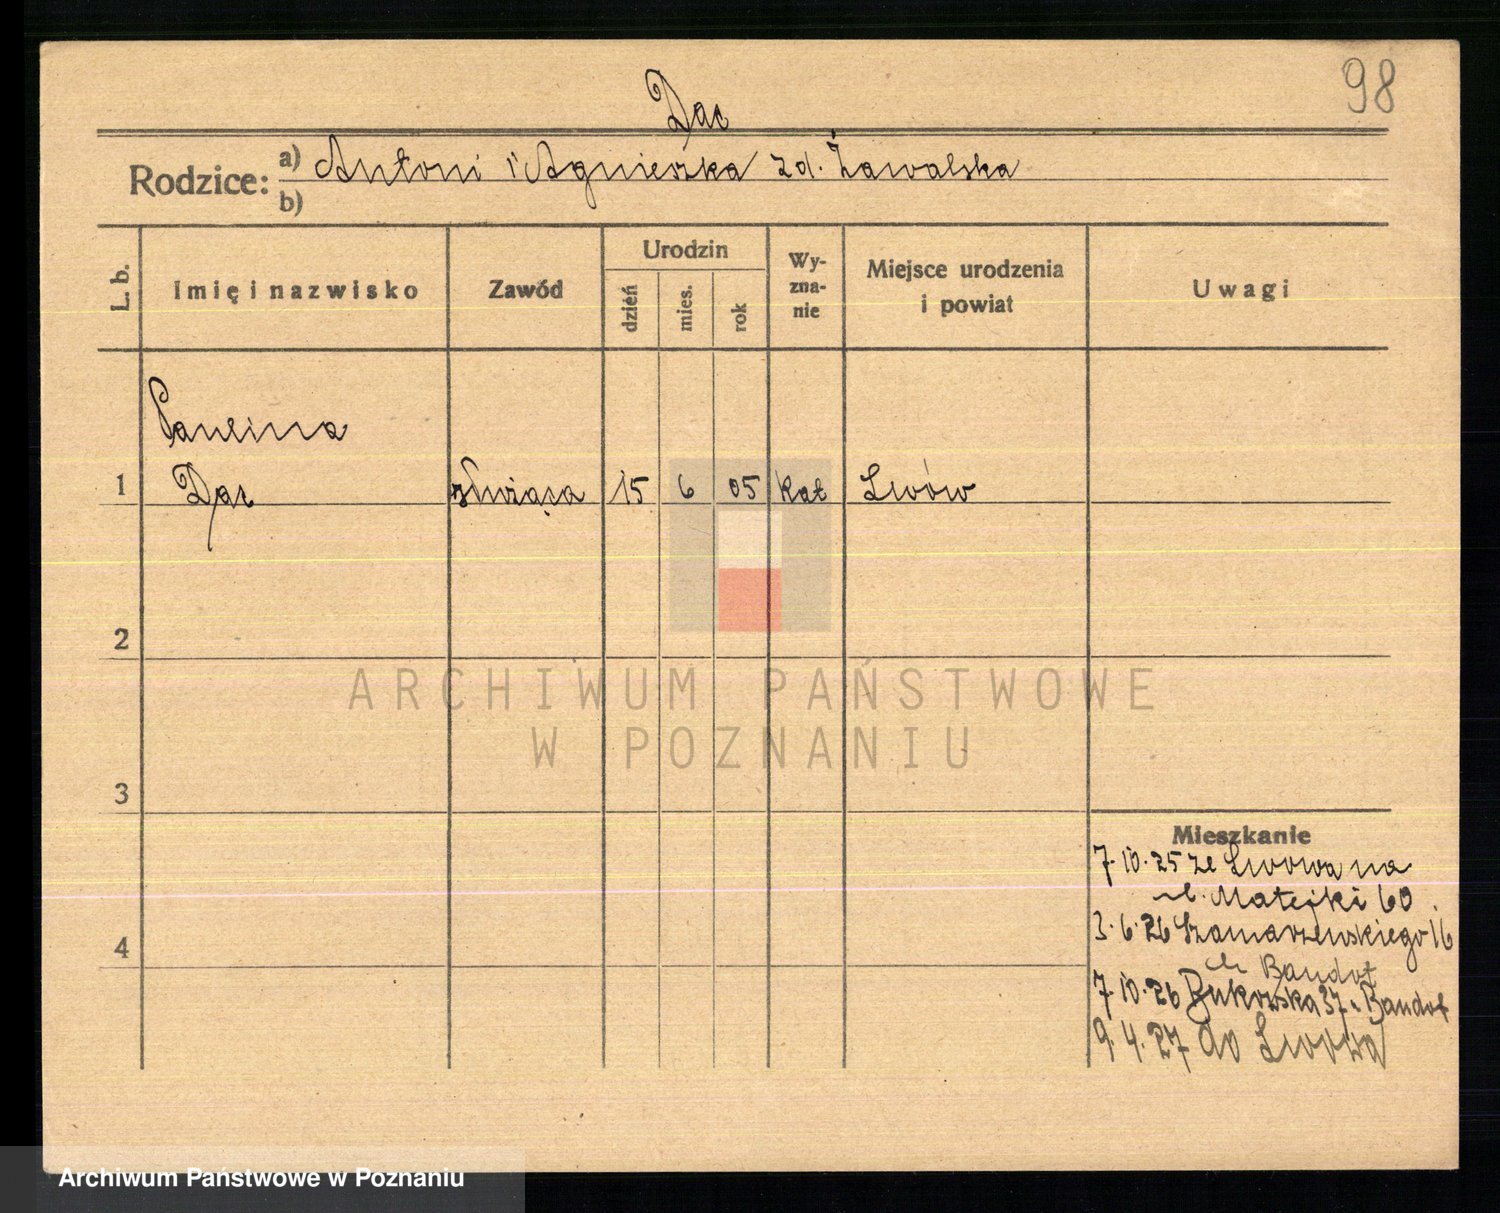 98
Dac
Rodzice: a) Antoni i Agnieszka z d. Zawalska
b)
L. b.
Imię i nazwisko
Zawód
Urodzin
dzień
mies.
rok
Wy-
zna-
nie
Miejsce urodzenia
i powiat
Uwagi
Paulina
1 Dac służąca 15 6 05 kat Lwów
2
ARCHIWUM PAŃSTWOWE
W POZNANIU
3
Mieszkanie
7.10.25 ze Lwowa na
ul. Matejki 60
3.6.26 Szamarzewskiego 16
u Bandot
4
7.10.26 Bukowska 37 u Bandot
9.4.27 do Lwowa
Archiwum Państwowe w Poznaniu